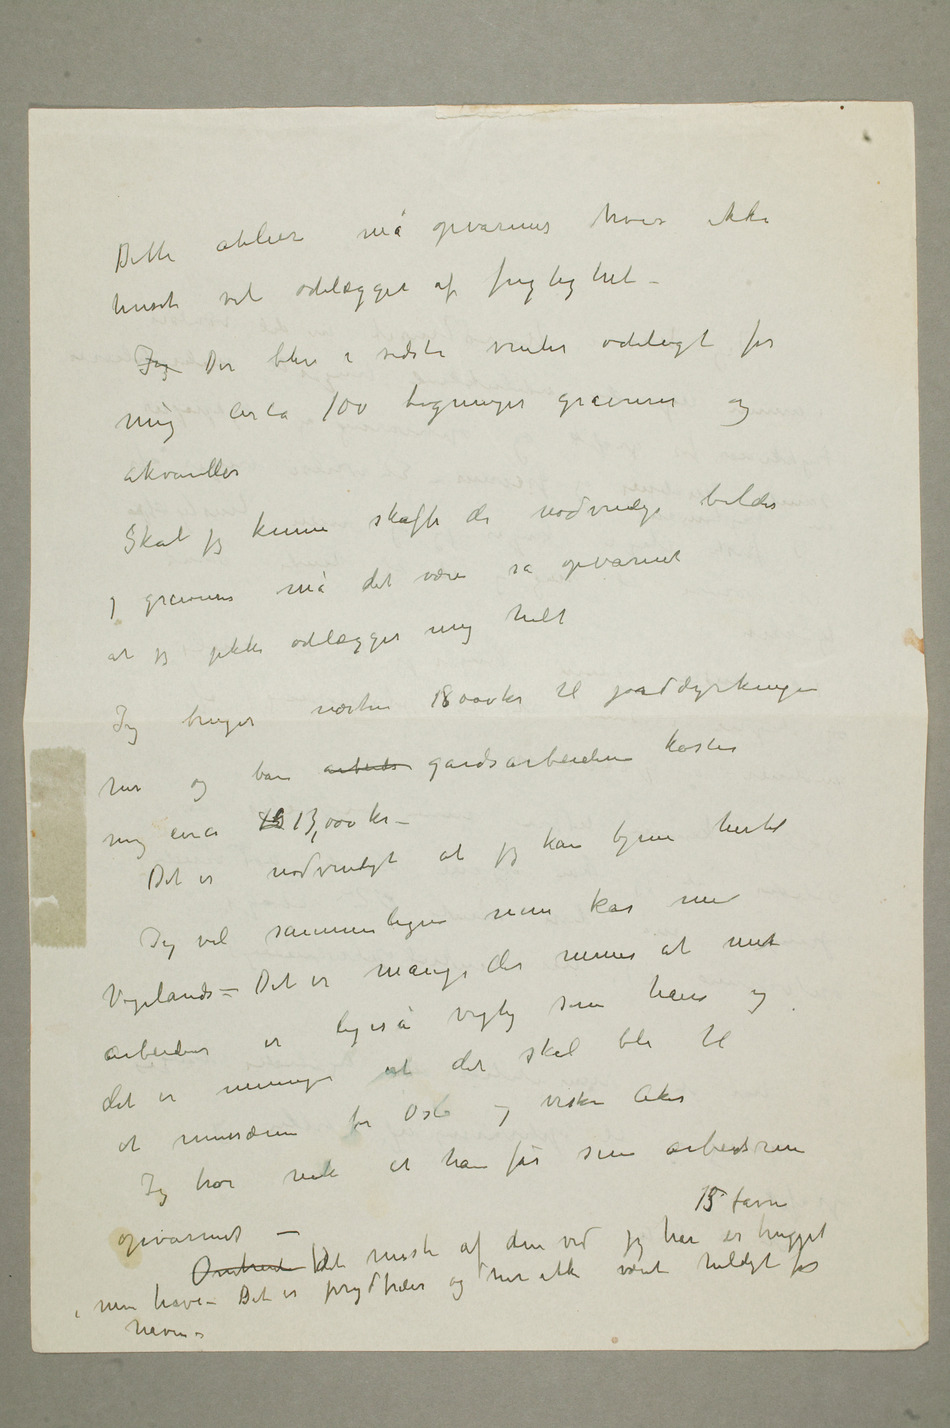 Dette atelier må opvarmes hvis ikke
huset vil ødelægges af fugtighet –
Jeg Der blev i sidste vinter ødelagt for
mig circa 100 tegninger graveurer og
akvareller
Skal jeg kunne skaffe de nødvendige bilder
og graveurer må det være så opvarmet
at jeg ikke ødelægger mig helt
Jeg bruger næsten 18000 kr til jorddyrkningen
her og bare arbeids gardsarbeideren koster
mig circa 13,000 kr –
Det er nødvendigt at jeg kan tjene hertil
Jeg vil sammenligne mine kår med
Vigelands – Det er mange der mener at mit
arbeide er ligeså vigtig som hans og
det er meningen at det skal bli til
et musæum for Oslo og vestre Aker
Jeg tror nok at han får sine arbeidsrum
opvarmet –
15 favne
Omtrent Det meste af den ved jeg har er hugget
i min have – Det er prydtræer og har ikke været heldigt for
haven –